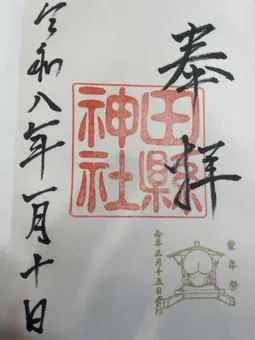 奉拝
田縣神社
豊年祭
毎年三月十五日斎行
令和八年一月十日